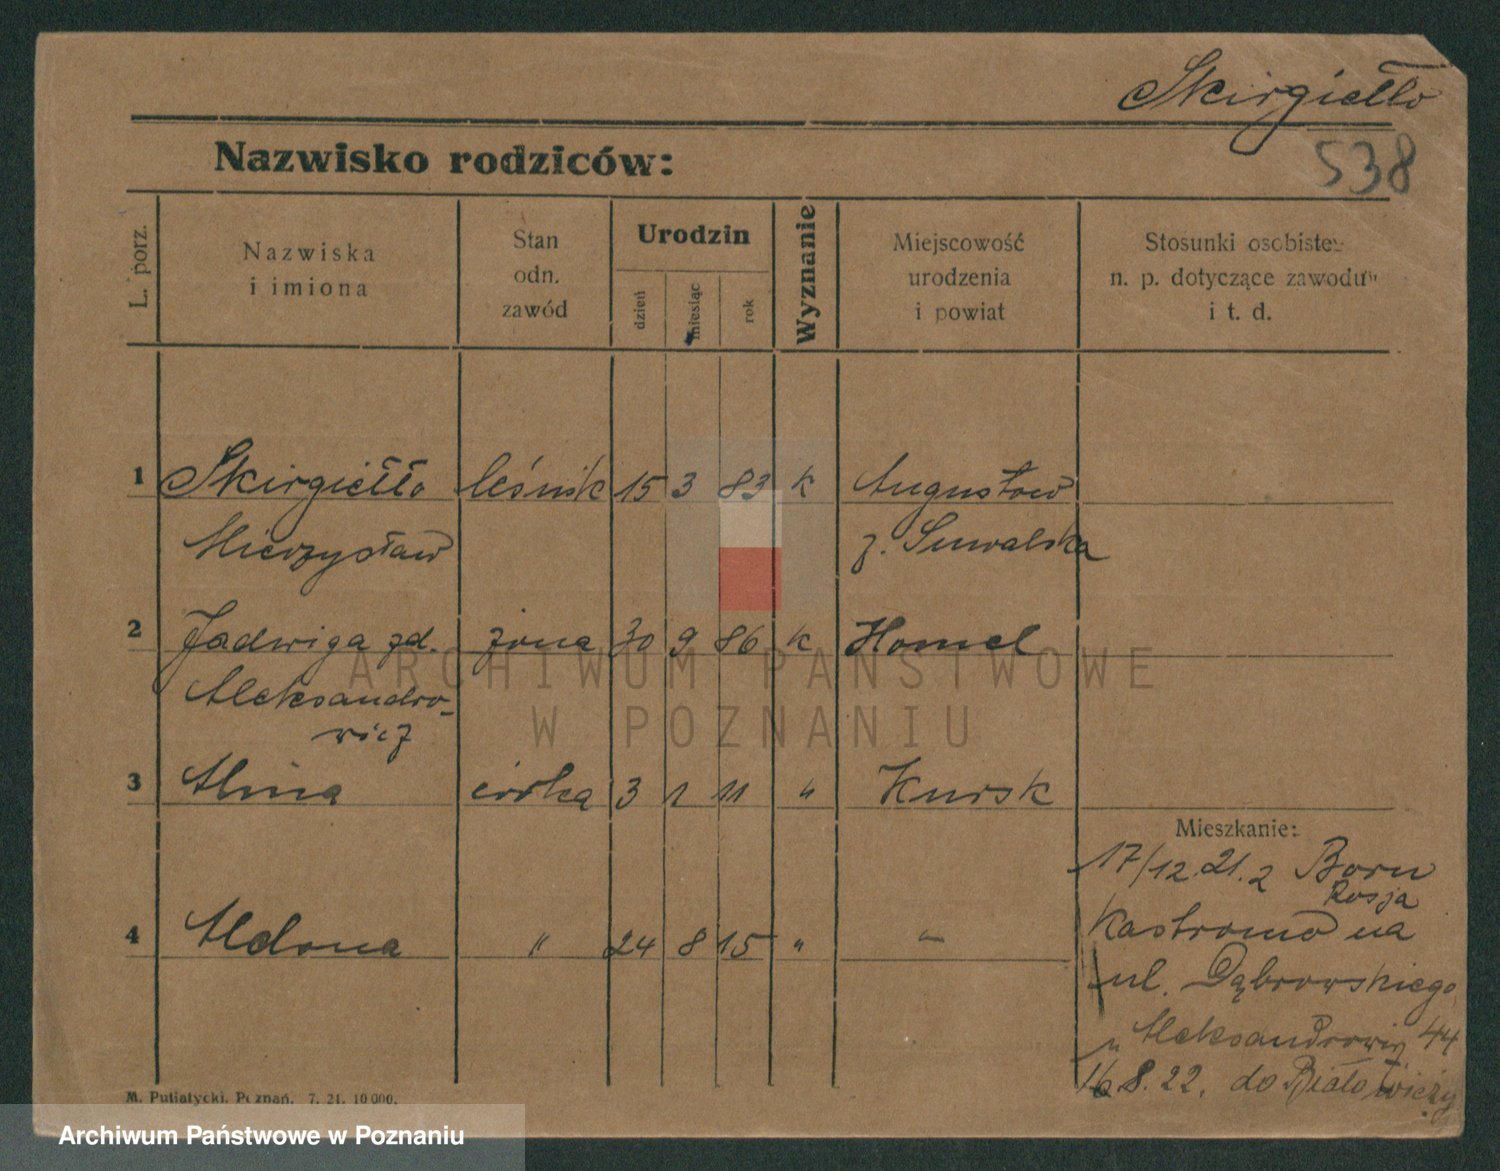 Skirgiełło
538
Nazwisko rodziców:
L. porz.
Nazwiska
i imiona
Stan
odn.
zawód
Urodzin
dzień
miesiąc
rok
Wyznanie
Miejscowość
urodzenia
i powiat
Stosunki osobiste
n. p. dotyczące zawodu
i t. d.
1 Skirgiełło leśnik 15 3 83 k Augustów
Mieczysław z. Suwalska
2 Jadwiga zd. żona 30 9 86 k Homel
Aleksandro-
wicz
3 Alina córka 3 1 11 " Kursk
Mieszkanie:
17/12.21. z
Rosja
4 Aldona " 24 8 15 " "
Kastroma na
ul. Dąbrowskiego
u Aleksandrowicz 44
16.8.22. do Białowieży
M. Putiatycki, Poznań. 7. 21. 10 000.
ARCHIWUM PAŃSTWOWE
W POZNANIU
Archiwum Państwowe w Poznaniu